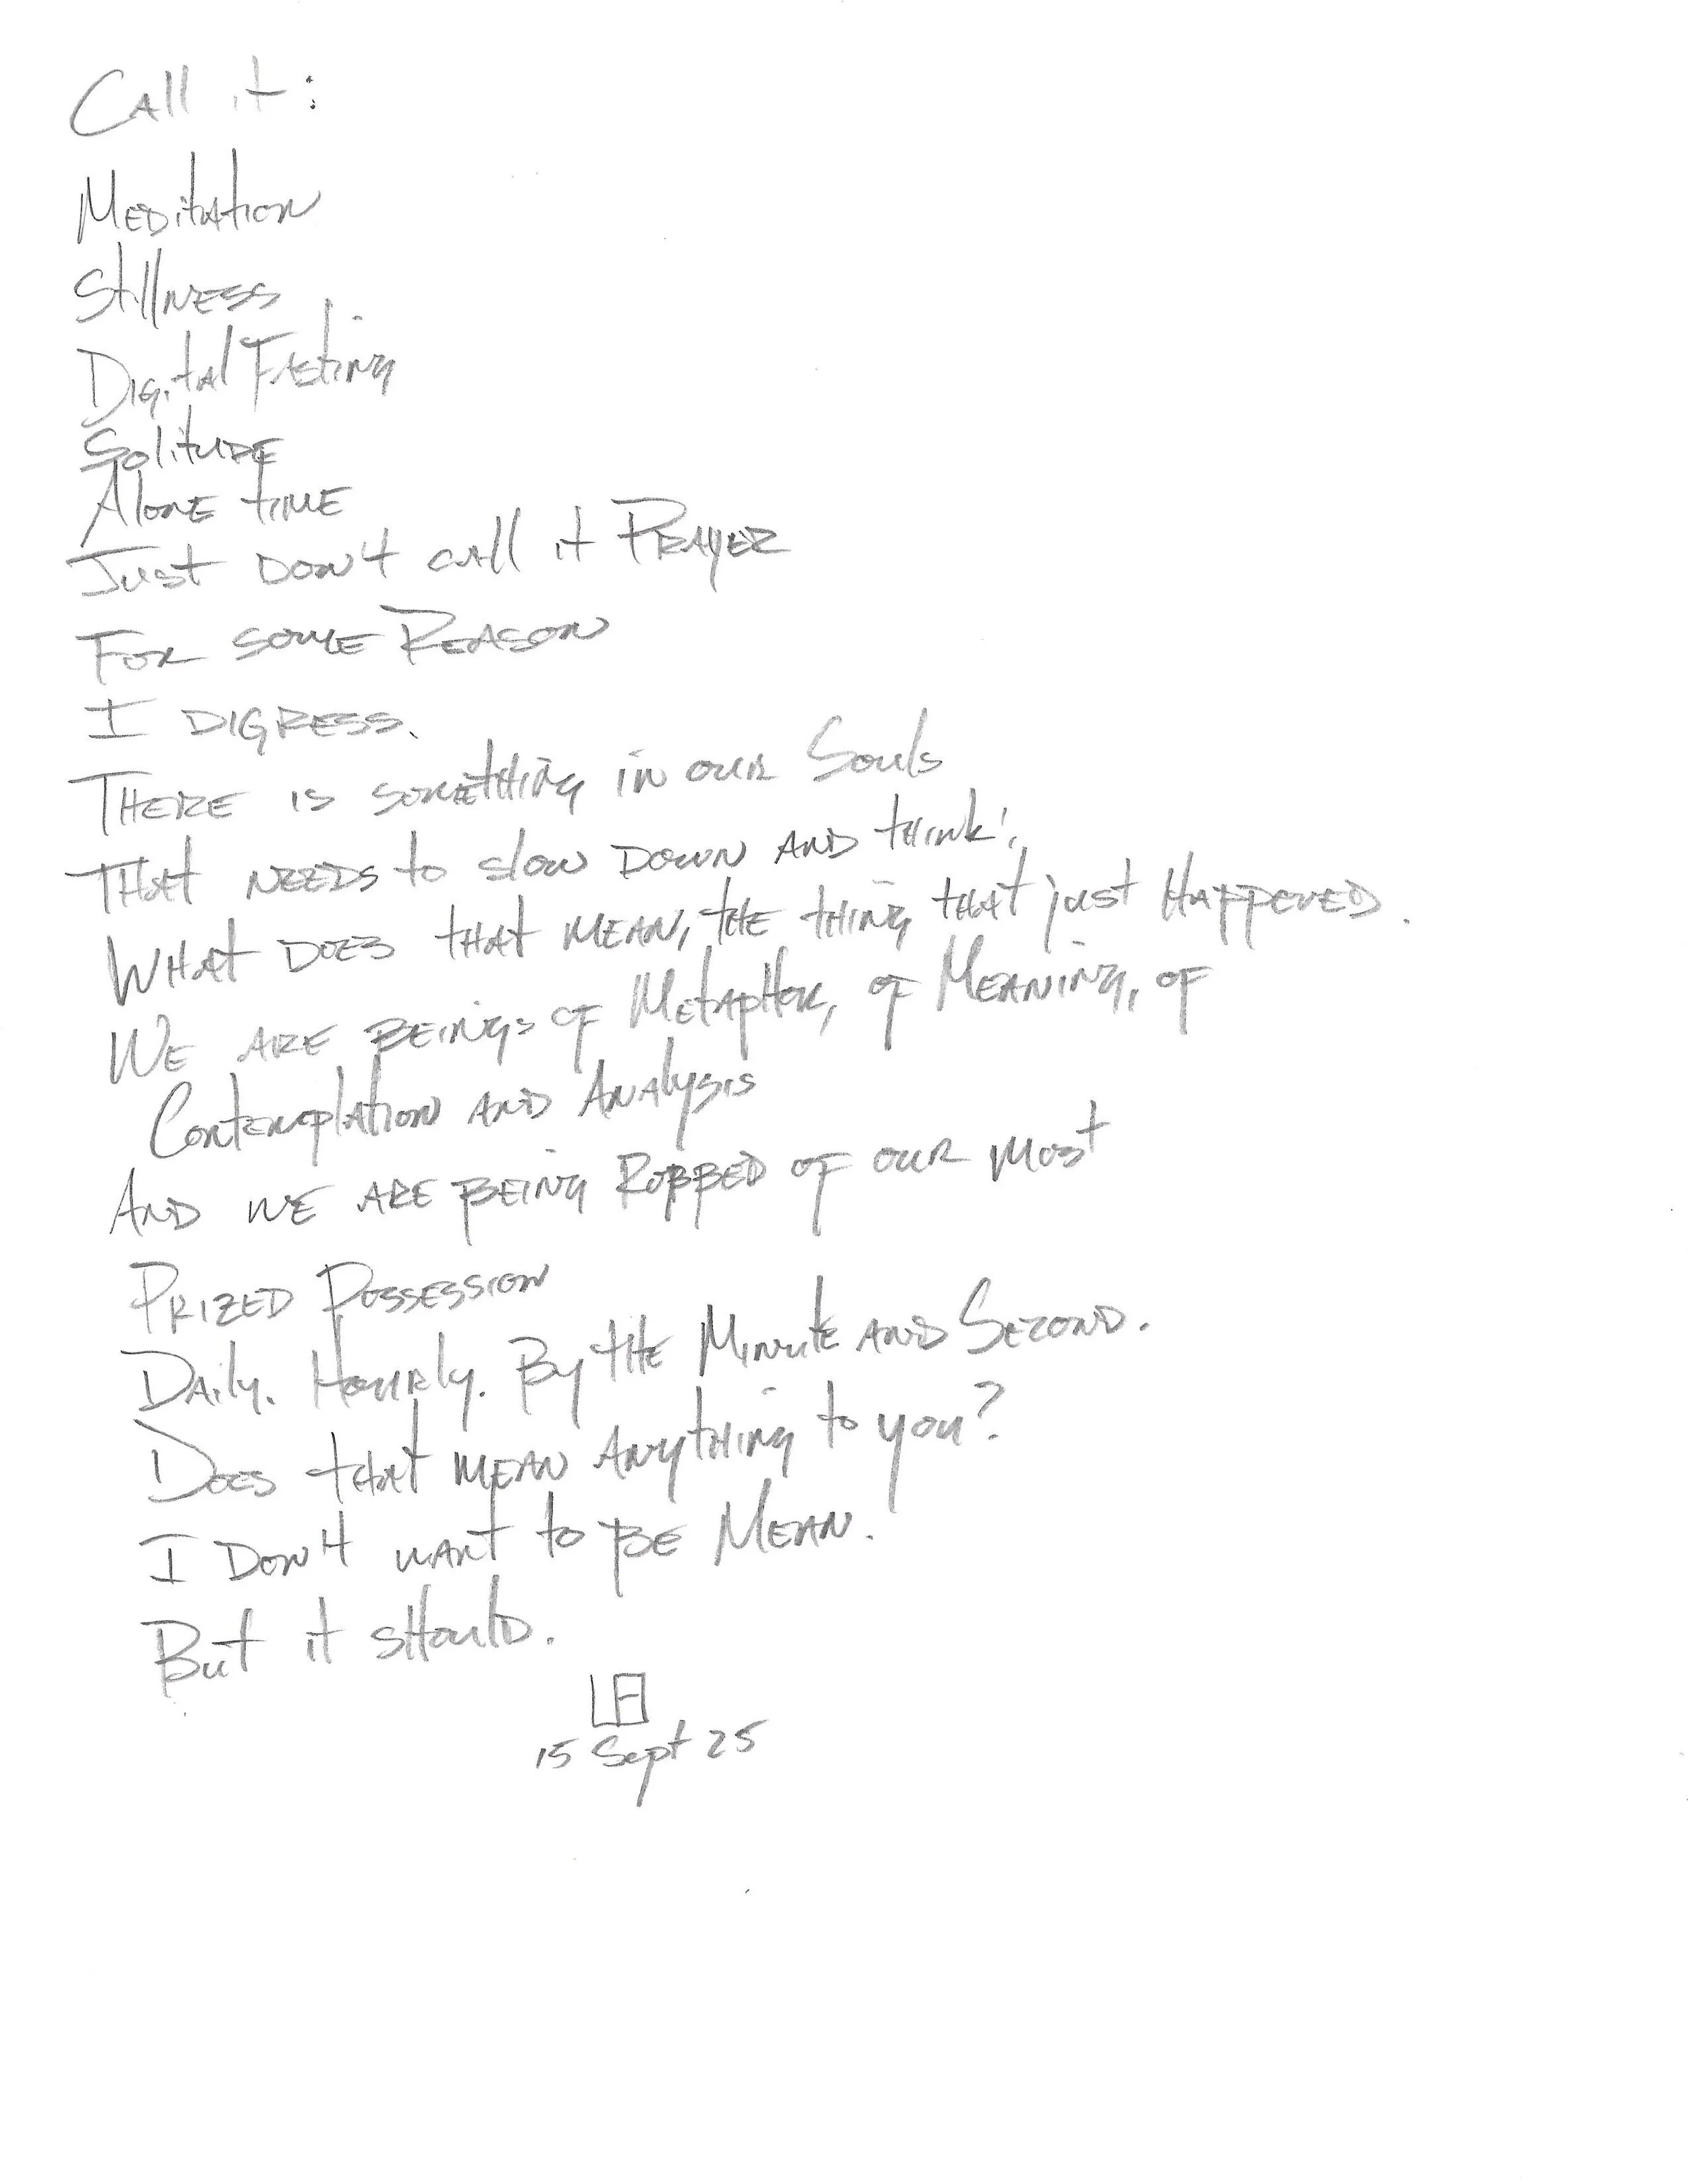 Call it:
Meditation
Stillness
Digital Fasting
Solitude
Alone time
Just don't call it Prayer
For some Reason
I digress.
There is something in our Souls
That needs to slow down and think:
What does that mean, the thing that just Happened.
We are beings of Metaphor, of Meaning, of
Contemplation and Analysis
And we are being Robbed of our most
Prized Possession
Daily. Hourly. By the Minute and Second.
Does that mean Anything to you?
I Don't want to Be Mean.
But it should.
15 Sept 25